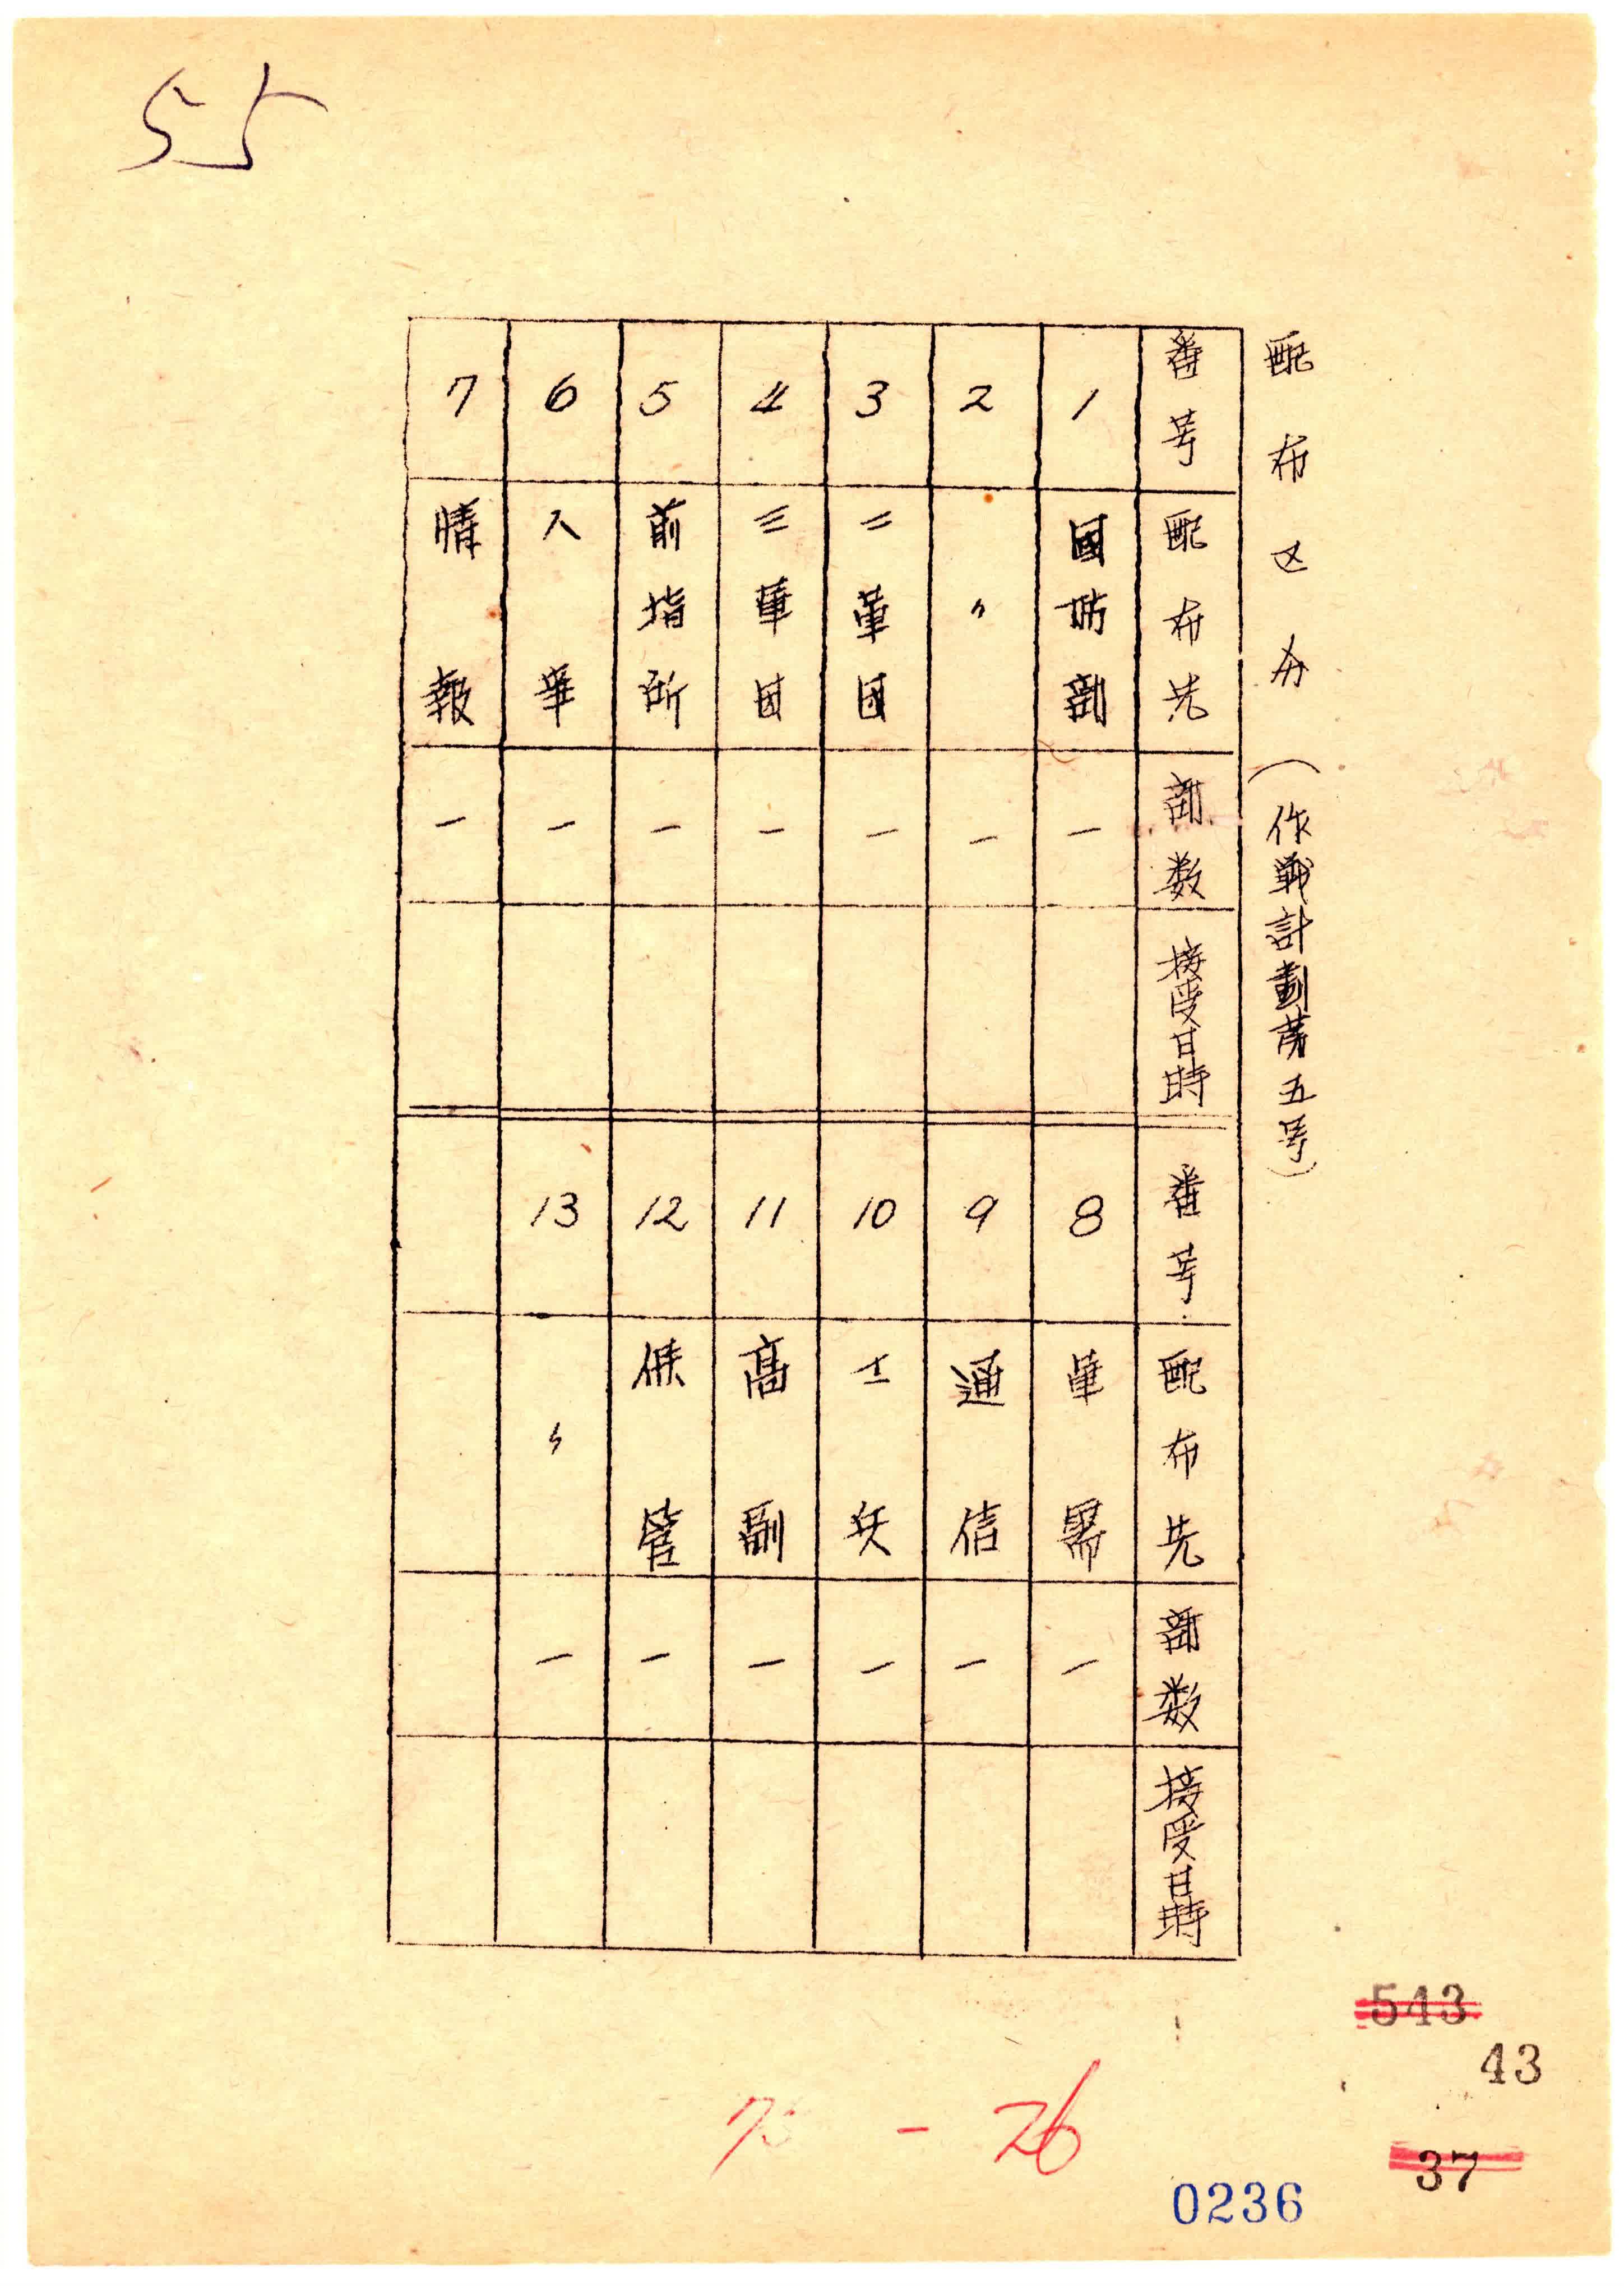 55
配布区分（作戰計劃第五号）
番号 配布先 部数 接受日時 番号 配布先 部数 接受日時
1 國防部 一 8 軍需 一
2 〃 一 9 通信 一
3 二軍団 一 10 工兵 一
4 三軍団 一 11 高副 一
5 前指所 一 12 保管 一
6 人事 一 13 〃 一
7 情報 一
543
43
- 26
37
0236